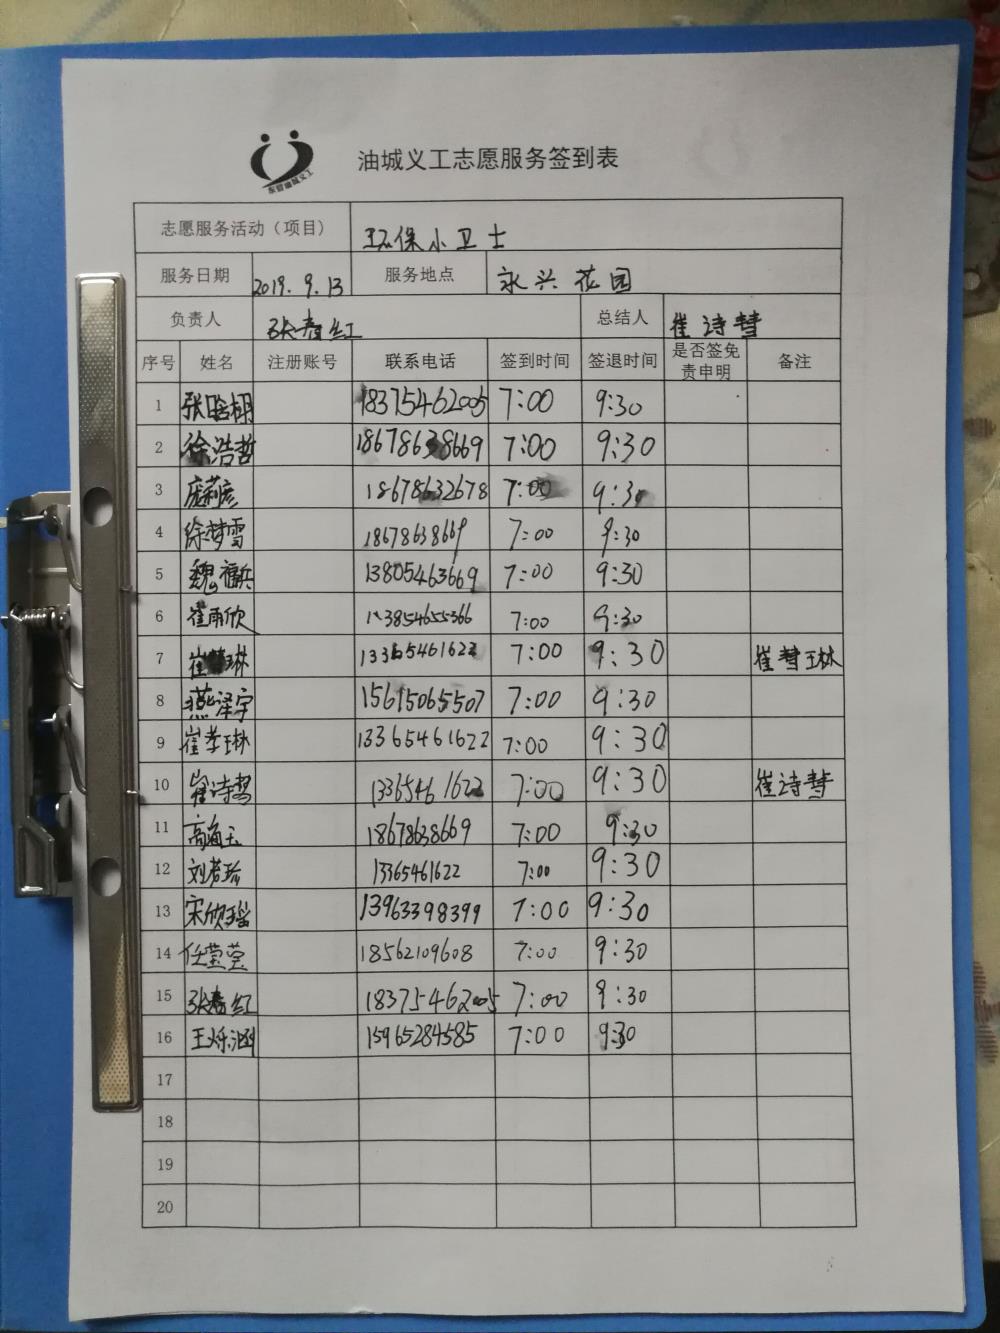 东营油城义工
油城义工志愿服务签到表
志愿服务活动（项目） 环保小卫士
服务日期 2019.9.13 服务地点 永兴花园
负责人 张春红 总结人 崔诗彗
序号 姓名 注册账号 联系电话 签到时间 签退时间 是否签免责申明 备注
1 18375462005 7:00 9:30
2 徐浩哲 18678638669 7:00 9:30
3 庞莉彦 18678632678 7:00 9:30
4 徐梦雪 18678638669 7:00 9:30
5 魏福兵 13805463669 7:00 9:30
6 崔雨欣 13854655366 7:00 9:30
7 崔 琳 13365461622 7:00 9:30 崔彗琳
8 燕泽宇 15615065507 7:00 9:30
9 崔孝琳 13365461622 7:00 9:30
10 崔诗 13365461622 7:00 9:30 崔诗彗
11 18678638669 7:00 9:30
12 刘芳珍 13365461622 7:00 9:30
13 宋欣瑶 13963398399 7:00 9:30
14 任莹莹 18562109608 7:00 9:30
15 张春红 18375462005 7:00 9:30
16 王烁涵 15965284585 7:00 9:30
17
18
19
20